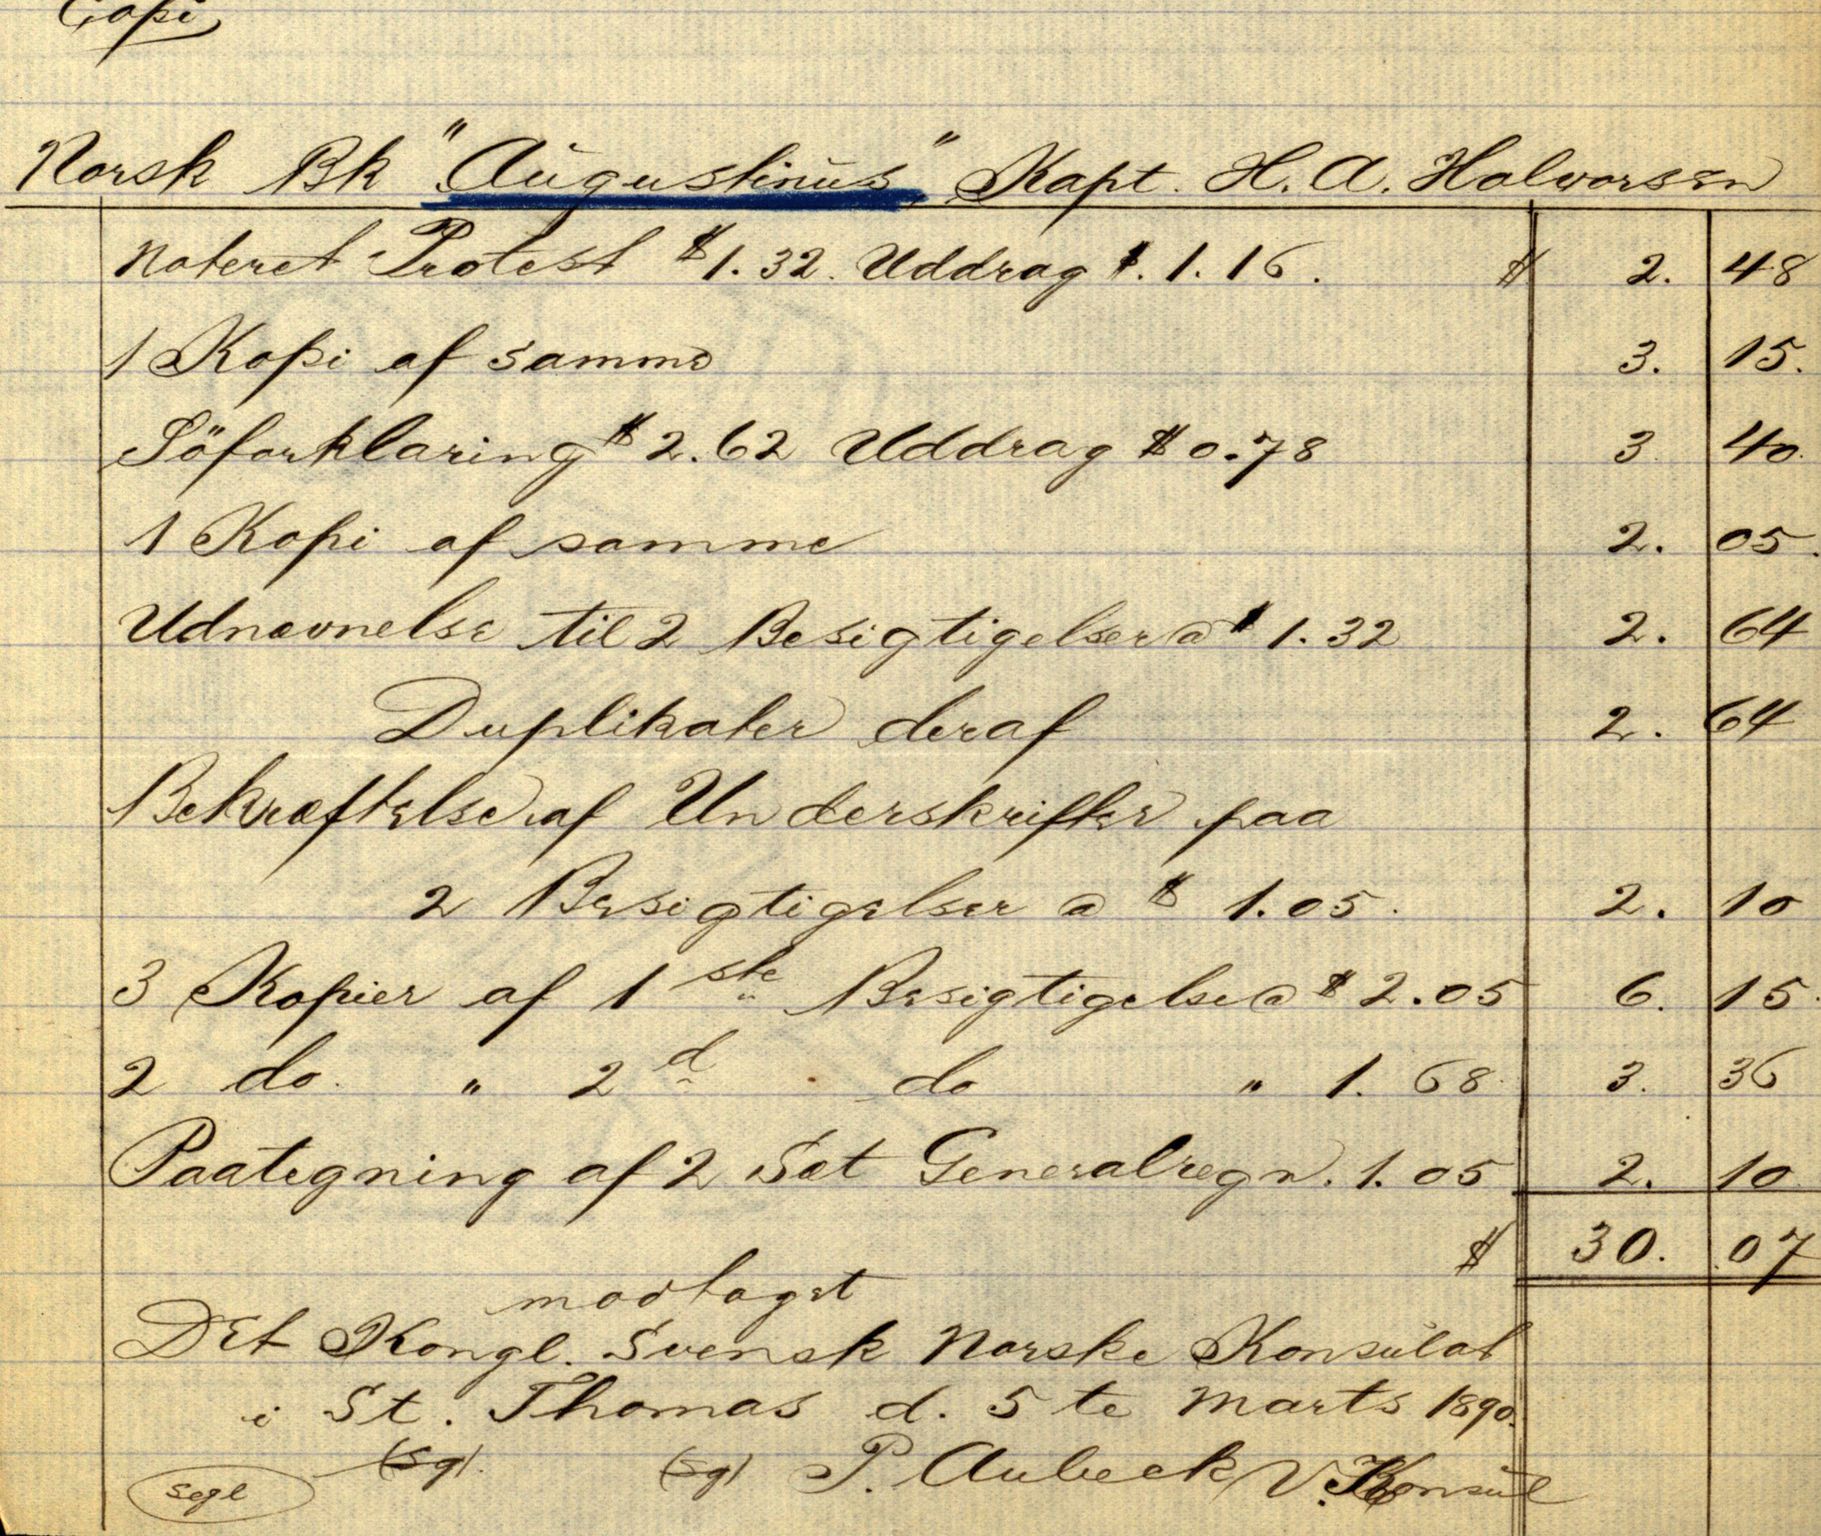 Copi
Norsk Bk "Augustinus" Kapt. H. A. Halvorsen
Noteret Protest $1.32. Uddrag $.1.16. $ 2. 48
1 Kopi af samme 3. 15.
Söforklaring $2.62 Uddrag $0.78 3 40.
1 Kopi af samme 2. 05.
Udnævnelse til 2 Besigtigelser a $1.32 2. 64
Duplikater deraf 2. 64
Bekræftelse af Underskrifter paa
2 Besigtigelser a $ 1.05. 2. 10
3 Kopier af 1ste Besigtigelse a $2.05 6. 15.
2 do. " 2d do " 1.68. 3. 36
Paategning af 2 Sæt Generalregn. 1.05 2. 10
$ 30. 07
modtaget
Det Kongl. Svensk Norske Konsulat
i St. Thomas d. 5te Marts 1890.
(sg). (sg) P. Aubeck V. Konsul
segl